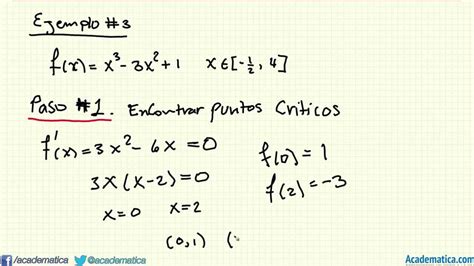 Ejemplo #3
f(x) = x³ - 3x² + 1   x ∈ [-½, 4]
Paso #1. Encontrar puntos Criticos
f'(x) = 3x² - 6x = 0
3x(x-2) = 0
x = 0   x = 2
f(0) = 1
f(2) = -3
(0,1) (
/academatica @academatica
Academatica.com